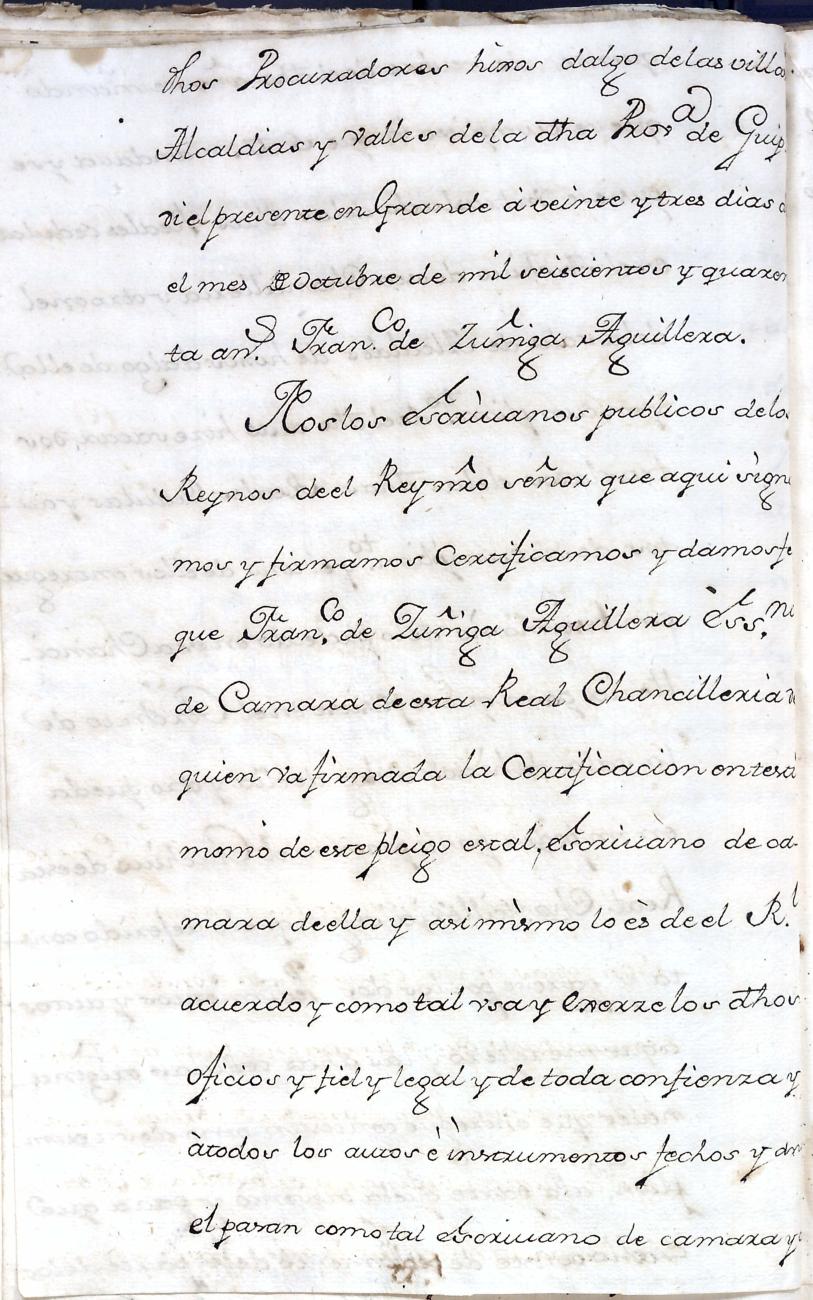 dhos Procuradores hixos dalgo de las villas
Alcaldias y Valles de la dha Prov.a de Guip
di el presente en Grande à veinte y tres dias d
el mes de Octubre de mil seiscientos y quaren
ta an.s Fran.co de Zuñiga Aguillera.
Nos los escrivanos publicos de los
Reynos de el Rey nro señor que aqui signa
mos y firmamos Certificamos y damos fe
que Fran.co de Zuñiga Aguillera Ess.no
de Camara de esta Real Chancilleria de
quien va firmada la Certificacion en testi
monio de este pleigo es tal, escrivàno de cà-
mara de ella y asimismo lo ès de el R.l
acuerdo y como tal vsa y exerze los dhos
oficios y fiel y legal y de toda confienza y
àtodos los autos è instrumentos fechos y
el pasan como tal escrivano de camara y